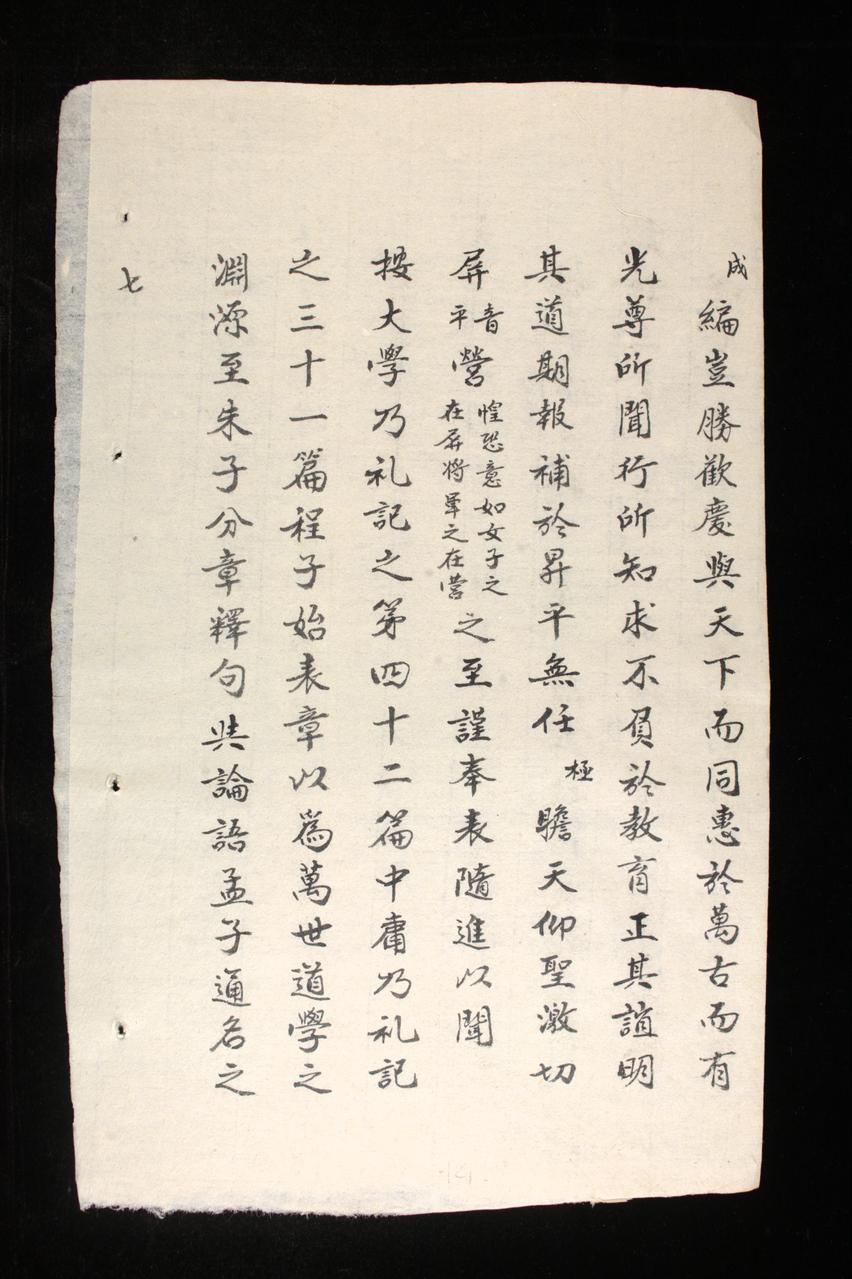 成編豈勝歡慶與天下而同惠於萬古而有
光尊所聞行所知求不負於教育正其誼明
其道期報補於昇平無任極瞻天仰聖激切
屏音平營惶恐意如女子之在屏將軍之在營之至謹奉表隨進以聞
按大學乃礼記之第四十二篇中庸乃礼記
之三十一篇程子始表章以為萬世道學之
淵源至朱子分章釋句與論語孟子通名之
七